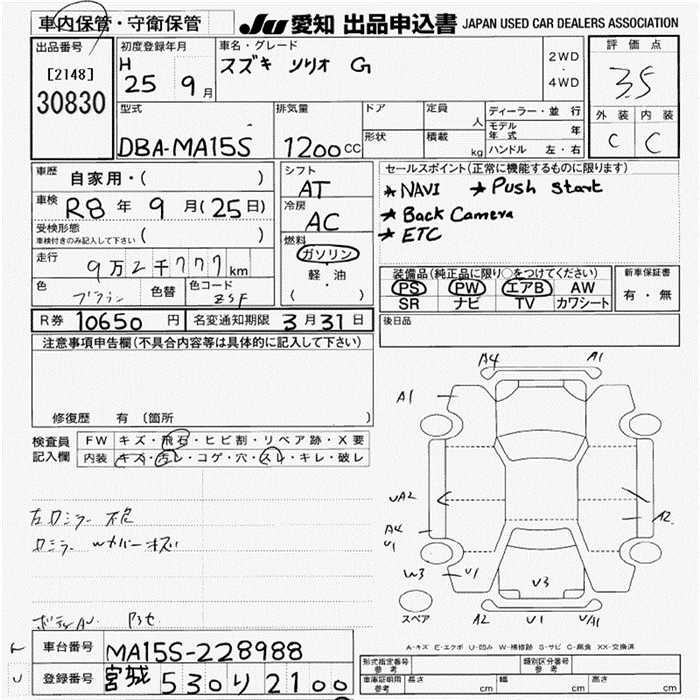 車内保管・守衛保管
JU 愛知 出品申込書 JAPAN USED CAR DEALERS ASSOCIATION
出品番号
[2148]
30830
初度登録年月
H 25 9月
車名・グレード
スズキ ソリオ G
2WD
・
4WD
評価点
3.5
外装 内装
C C
型式
DBA-MA15S
排気量
1200CC
ドア
形状
定員
人
積載
kg
ディーラー・並行
モデル年式 年
ハンドル 左・右
車歴
自家用・( )
車検
R8年 9月(25日)
受検形態
車検付きのみ記入して下さい ( )
走行
9万2千777km
色
ブラウン
色替
色コード
ZSF
シフト
AT
冷房
AC
燃料
ガソリン
・
軽油
( )
セールスポイント(正常に機能するものに限ります)
*NAVI *Push Start
*Back Camera
*ETC
装備品(純正品に限り○をつけてください)
PS PW エアB AW
SR ナビ TV カワシート
新車保証書
有・無
R券 10650円
名変通知期限 3月31日
後日品
注意事項申告欄(不具合内容等は具体的に記入して下さい)
修復歴 有 (箇所 )
検査員記入欄
FW キズ・飛石・ヒビ割・リペア跡・X要
内装 キズ・汚レ・コゲ・穴・スレ・キレ・破レ
A4 A1
A1
UA2
A2
A4
U1
W3 U1
U3
スペア
A2 U1 UA1
A-キズ E-エクボ U-凹み W-補修跡 S-サビ C-腐食 XX-交換済
車台番号 MA15S-228988
登録番号 宮城 530り2100
形式指定番号
参考
類別区分番号
参考
車庫証明用
参考
長さ cm 幅 cm 高さ cm